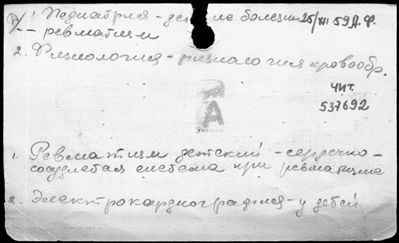 1. Педиатрия - детские болезни 25/XII 59 Д.Ф.
-- ревматизм
2. Физиология - физиология кровообр.
чит.
537692
А
1. Ревматизм детский - сердечно-
сосудистая система при ревматизме
2. Электрокардиография - у детей